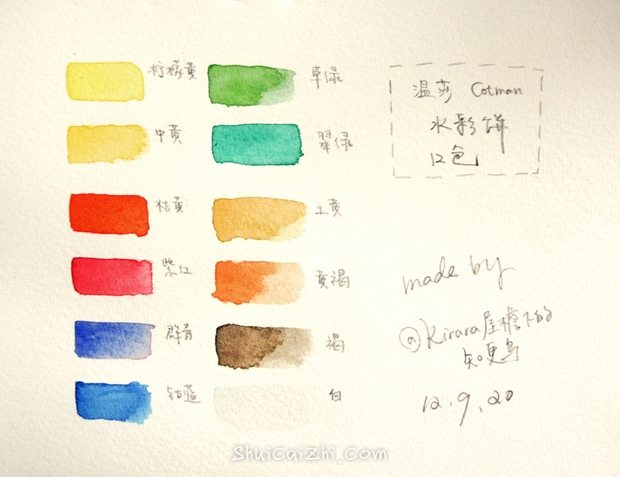 柠檬黄
草绿
中黄
翠绿
桔黄
土黄
紫红
黄褐
群青
褐
钴蓝
白
温莎 Cotman
水彩饼
12色
made by
@Kirara屋檐下的
知更鸟
12.9.20
ShuiCaiZhi.Com